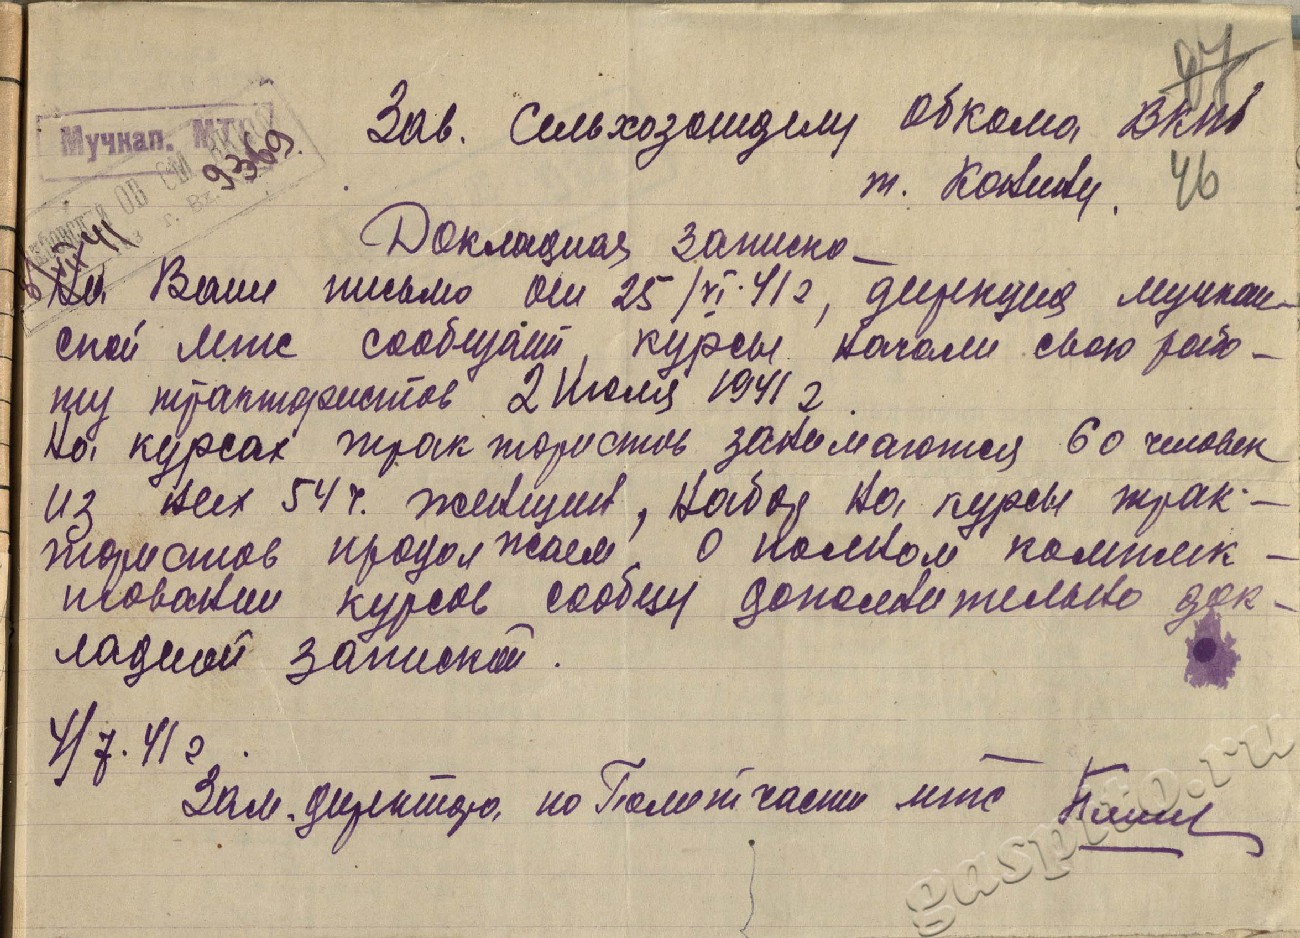 97
46
Мучкап. МТС
9369
Зав. Сельхозотделу Обкома ВКПб
т. Конину.
Докладная записка
На Ваше письмо от 25/VI-41г, дирекция мучкап-
ской мтс сообщает, курсы начали свою рабо-
ту трактористов 2 Июля 1941г.
На курсах трактористов занимаются 60 человек
из них 54 ч. женщин, набор на курсы трак-
тористов продолжаем. О полном комплек-
товании курсов сообщу дополнительно док-
ладной запиской.
4/7-41г.
Зам. директора по Политчасти мтс
gaspito.ru